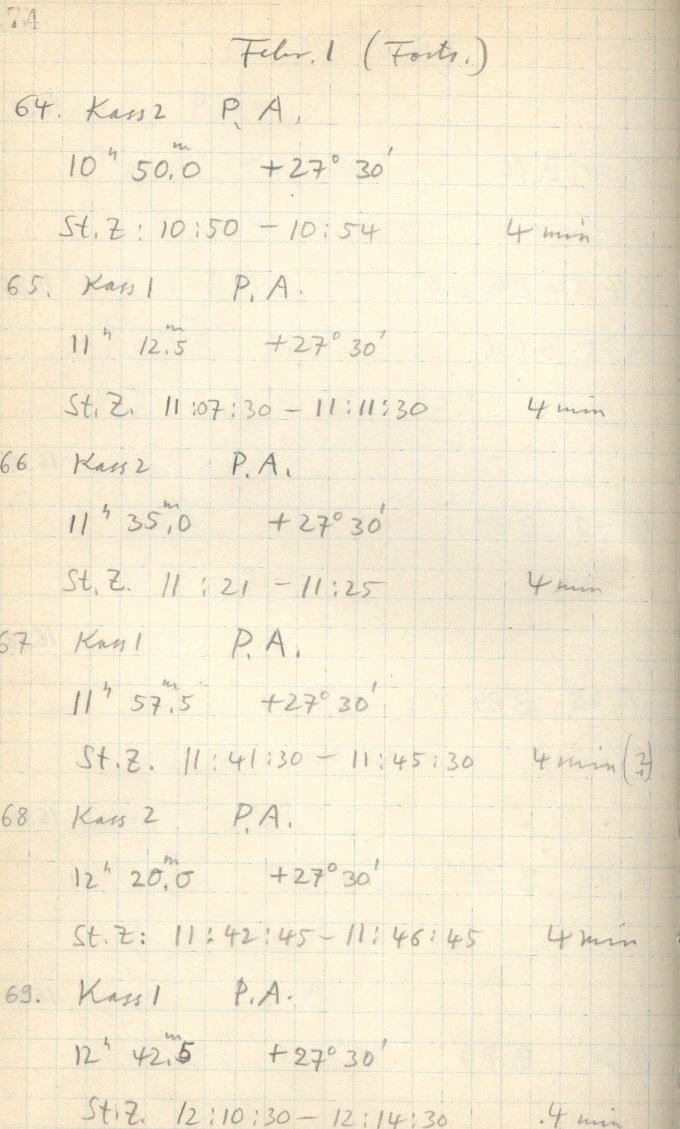 74
Febr. 1 (Forts.)
64. Kass 2 P. A.
10ʰ 50ᵐ.0 +27° 30'
St. Z: 10:50 - 10:54 4 min
65. Kass 1 P. A.
11ʰ 12ᵐ.5 +27° 30'
St. Z. 11:07:30 - 11:11:30 4 min
66 Kass 2 P. A.
11ʰ 35ᵐ.0 +27° 30'
St. Z. 11:21 - 11:25 4 min
67 Kass 1 P. A.
11ʰ 57ᵐ.5 +27° 30'
St. Z. 11:41:30 - 11:45:30 4 min
68 Kass 2 P. A.
12ʰ 20ᵐ.0 +27° 30'
St. Z: 11:42:45 - 11:46:45 4 min
69. Kass 1 P. A.
12ʰ 42ᵐ.5 +27° 30'
St. Z. 12:10:30 - 12:14:30 4 min